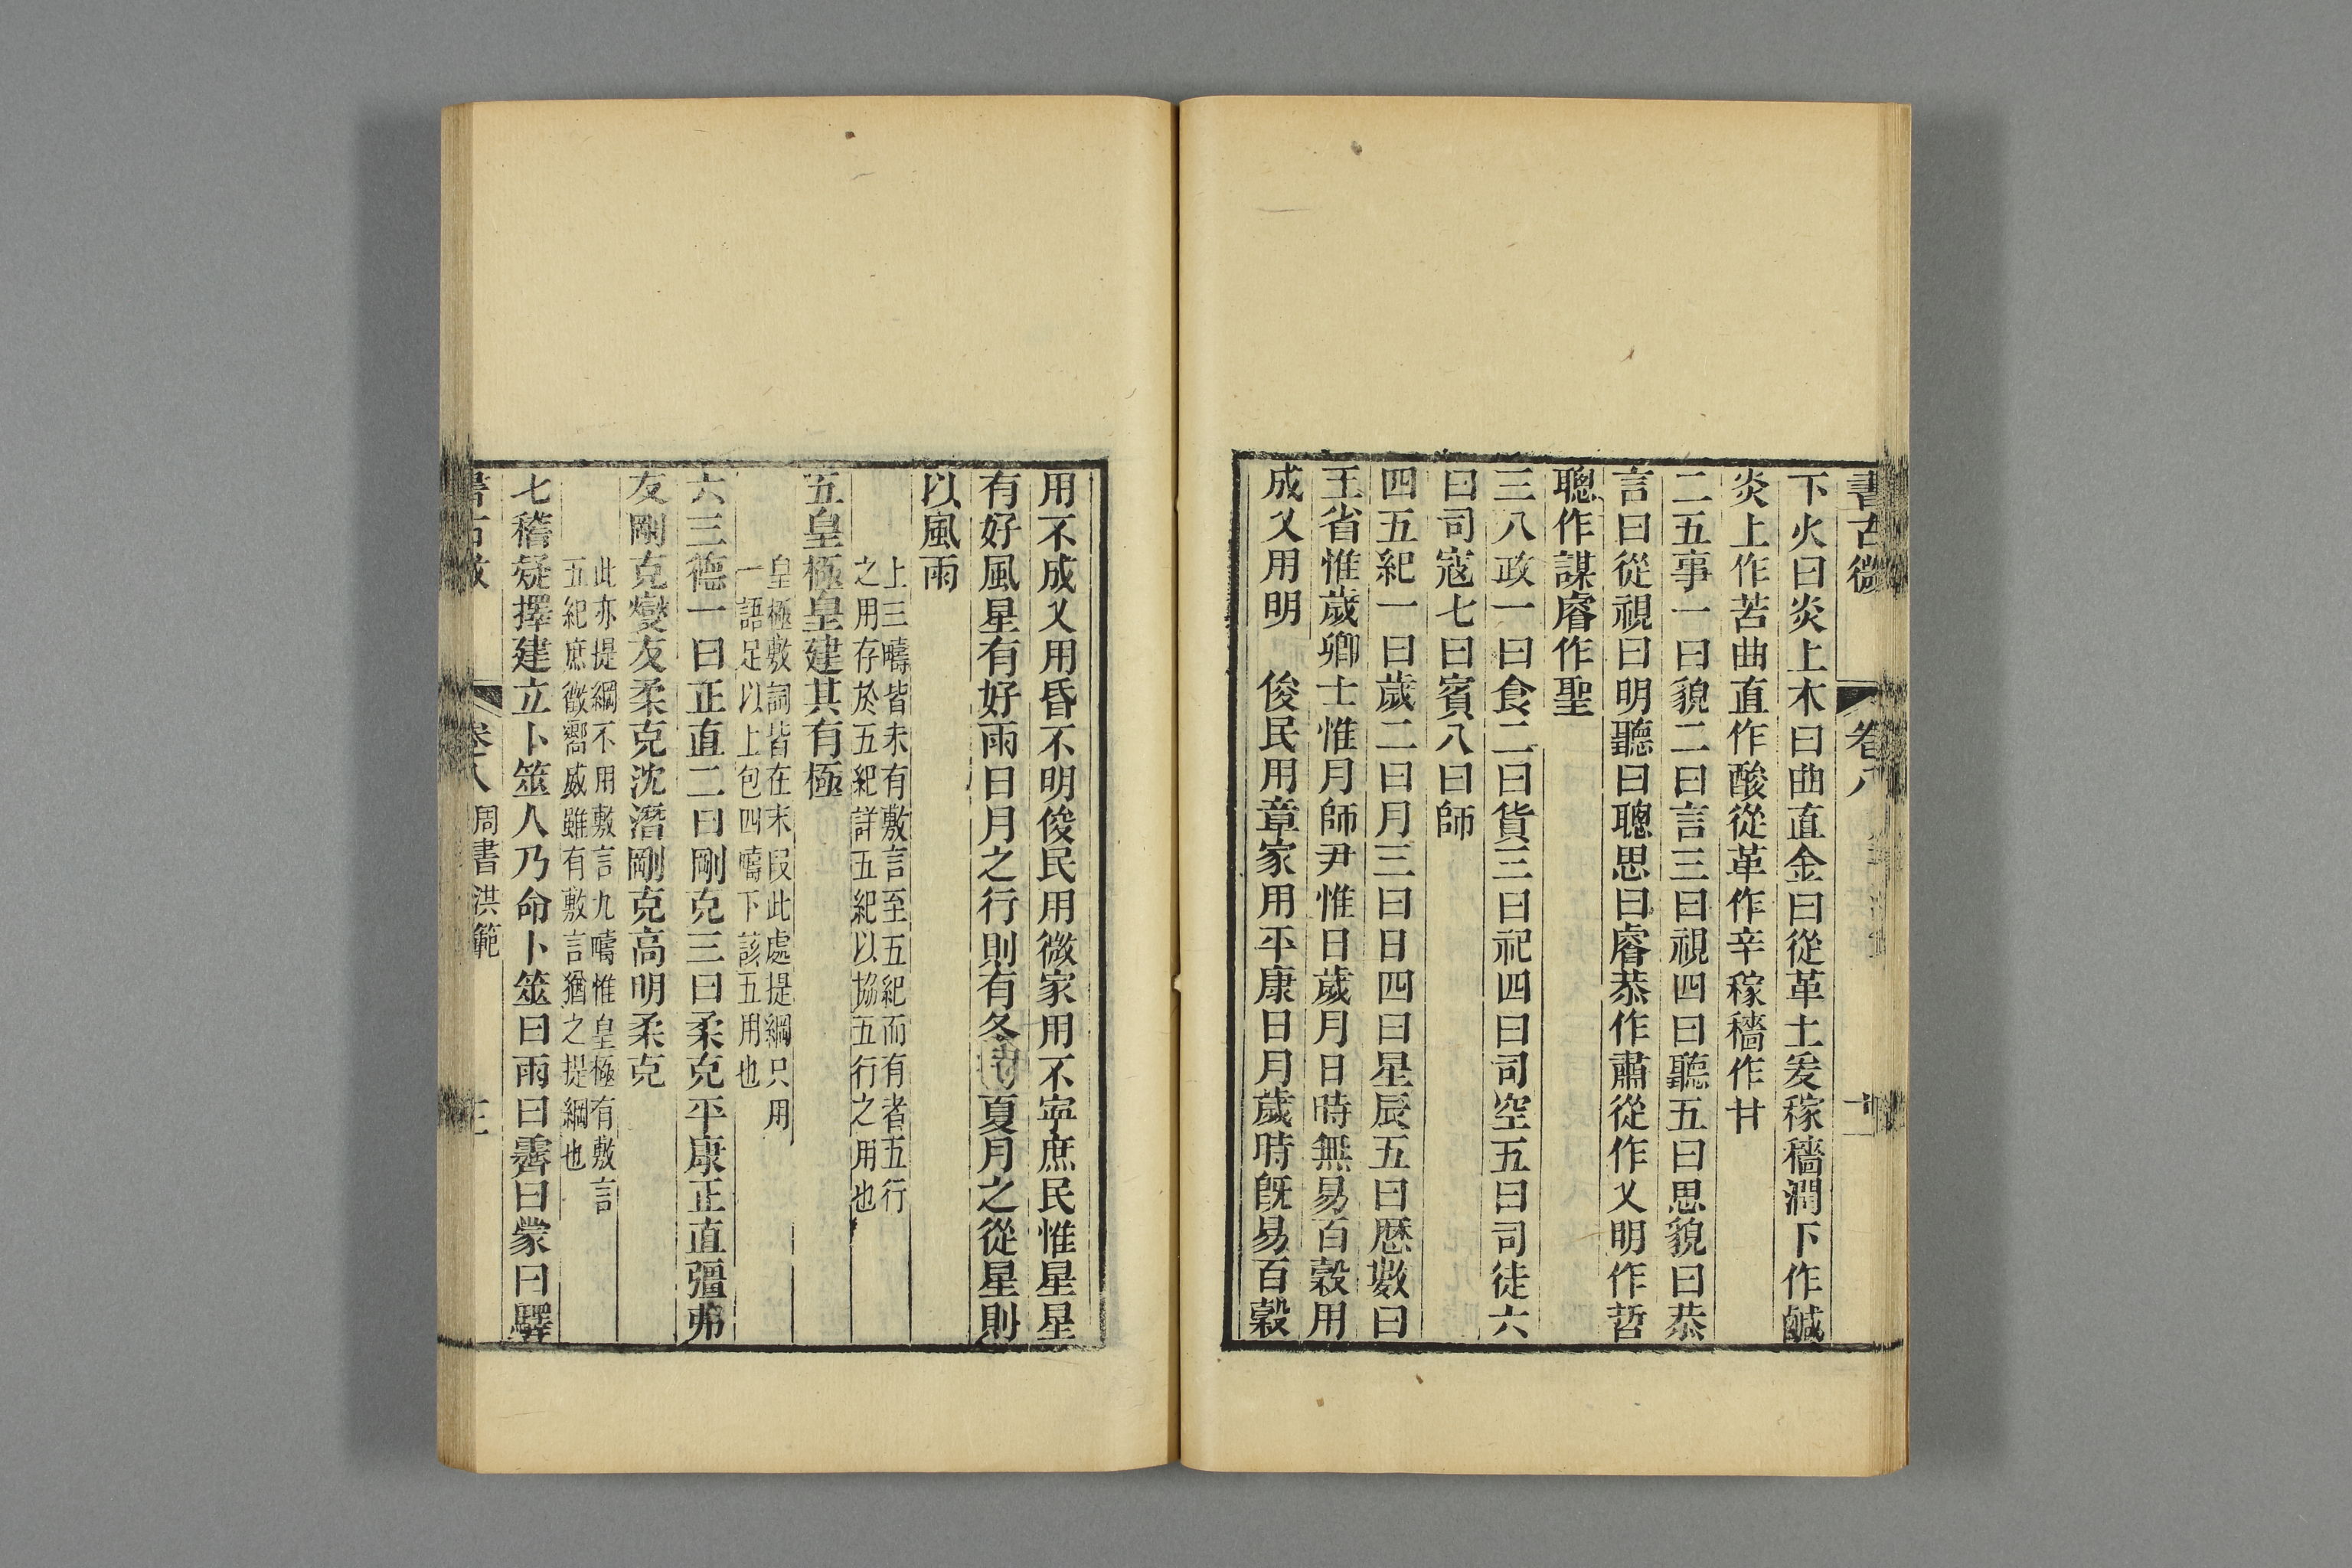 書古微 卷八
下火曰炎上木曰曲直金曰從革土爰稼穡潤下作鹹
炎上作苦曲直作酸從革作辛稼穡作甘
二五事一曰貌二曰言三曰視四曰聽五曰思貌曰恭
言曰從視曰明聽曰聰思曰睿恭作肅從作乂明作哲
聰作謀睿作聖
三八政一曰食二曰貨三曰祀四曰司空五曰司徒六
曰司寇七曰賓八曰師
四五紀一曰歲二曰月三曰日四曰星辰五曰厯數曰
王省惟歲卿士惟月師尹惟日歲月日時無易百穀用
成乂用明 俊民用章家用平康日月歲時既易百穀
用不成乂用昏不明俊民用微家用不寧庶民惟星星
有好風星有好雨日月之行則有冬有夏月之從星則
以風雨
上三疇皆未有敷言至五紀而有者五行
之用存於五紀詳五紀以協五行之用也
五皇極皇建其有極
皇極敷詞皆在末段此處提綱只用
一語足以上包四疇下該五用也
六三德一曰正直二曰剛克三曰柔克平康正直彊弗
友剛克燮友柔克沈潛剛克高明柔克
此亦提綱不用敷言九疇惟皇極有敷言
五紀庶徵嚮威雖有敷言猶之提綱也
七稽疑擇建立卜筮人乃命卜筮曰雨曰霽曰蒙曰驛
書古微 卷八 周書洪範